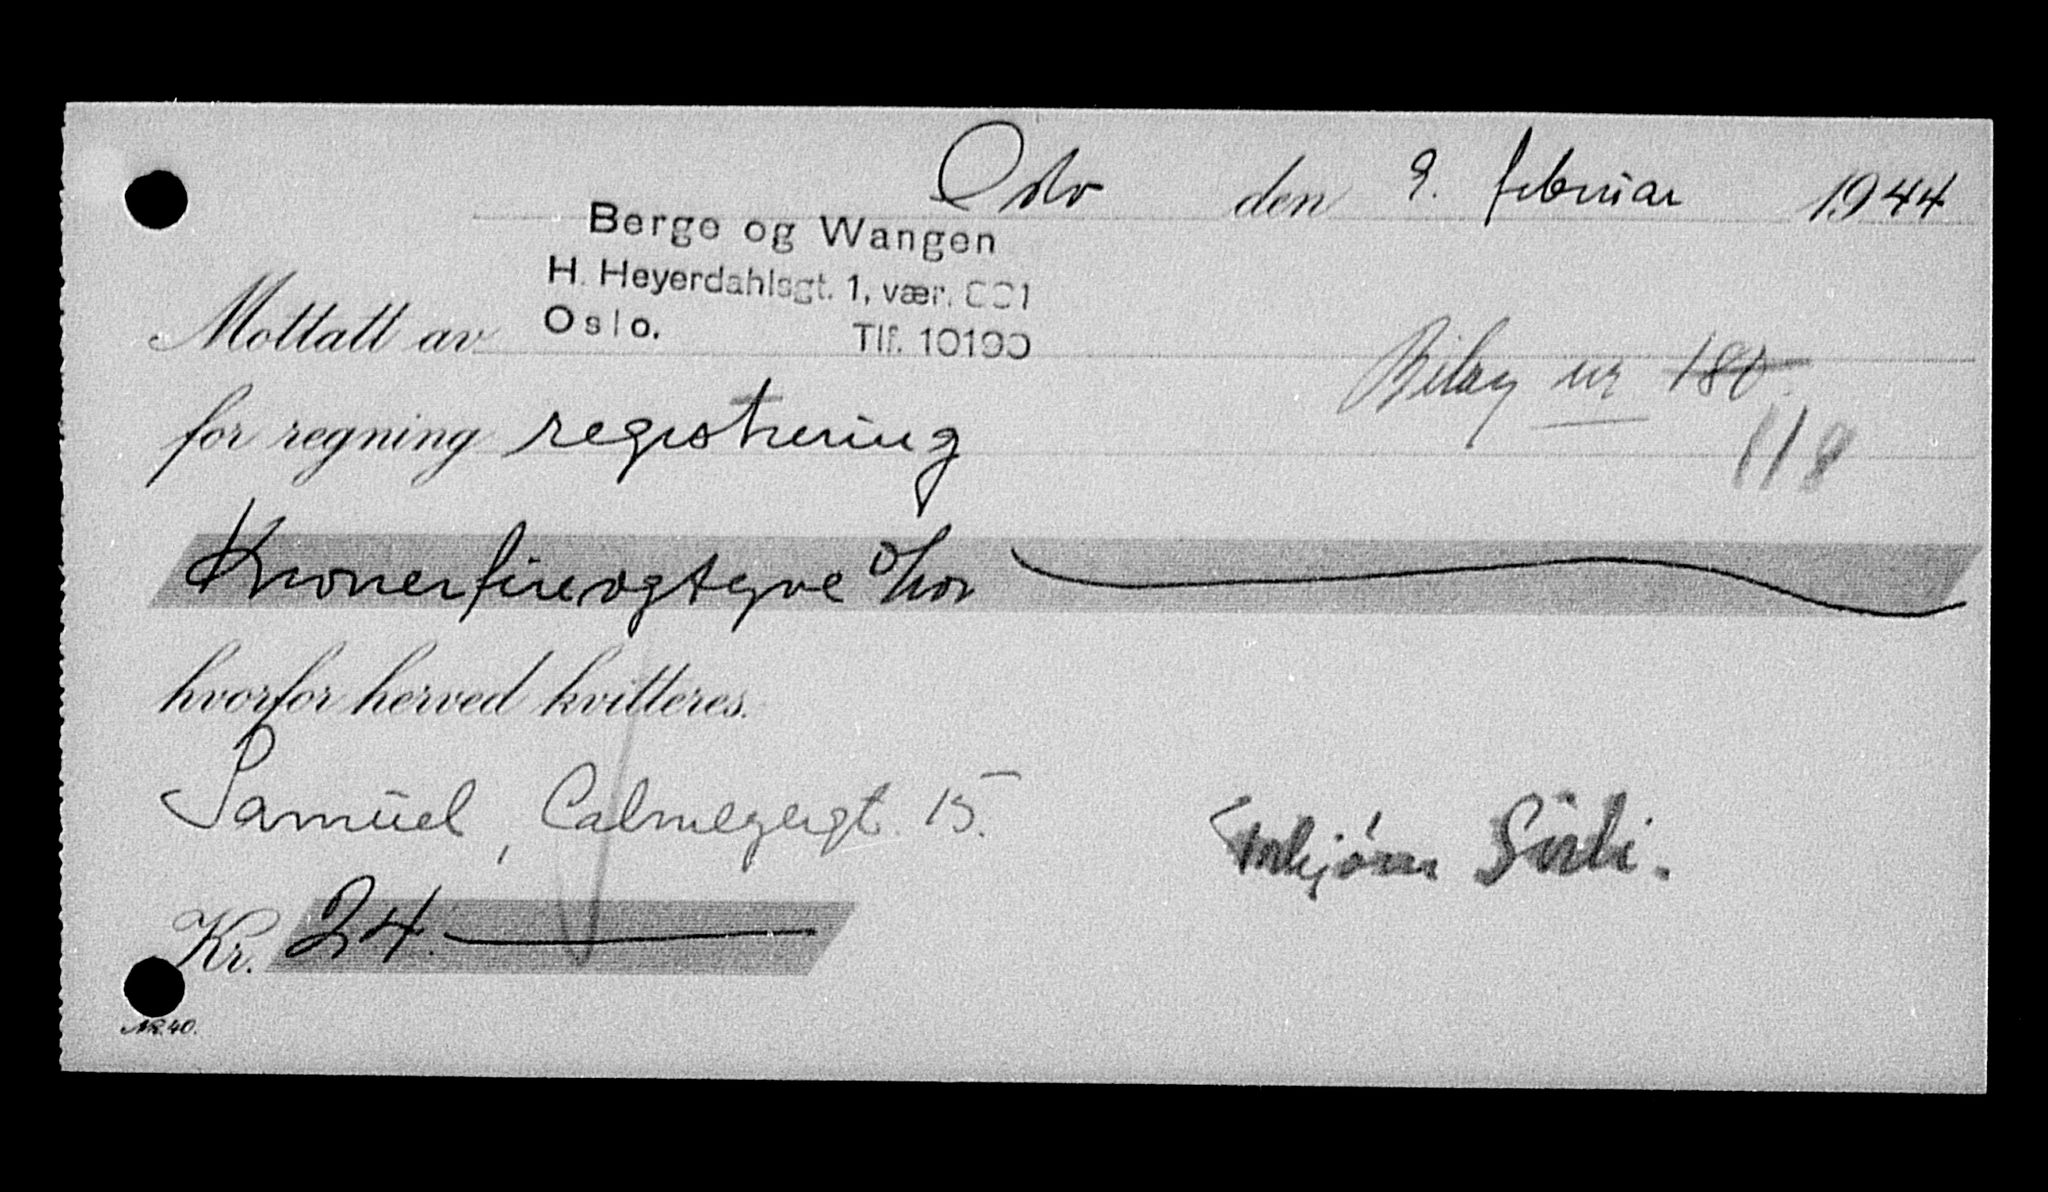 Oslo den 9. februar 1944
Berge og Wangen
H. Heyerdahlsgt. 1, vær.
Oslo. Tlf. 10190
Mottatt av
Bilag nr 180
118
for regning registrering
Kroner fireogtyve 0/00
hvorfor herved kvitteres.
Samuel, Calmeyergt. 15.
Kr. 24.
NR. 40.